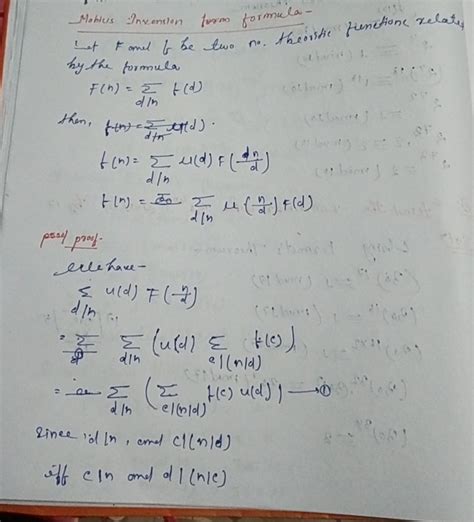 Mobius Inversion form formula-
Let F and f be two no. theoristic functions related
by the formula
F(n) = Σ_{d|n} f(d)
then, f(n) = Σ_{d|n} u(d).
f(n) = Σ_{d|n} u(d) F(n/d)
f(n) = Σ_{d|n} u(n/d) F(d)
proof proof-
We have-
Σ_{d|n} u(d) F(n/d)
= Σ Σ_{d|n} (u(d) Σ_{c|(n/d)} f(c))
= Σ_{d|n} (Σ_{c|(n/d)} f(c) u(d)) → ①
since d|n, and c|(n/d)
iff c|n and d|(n/c)